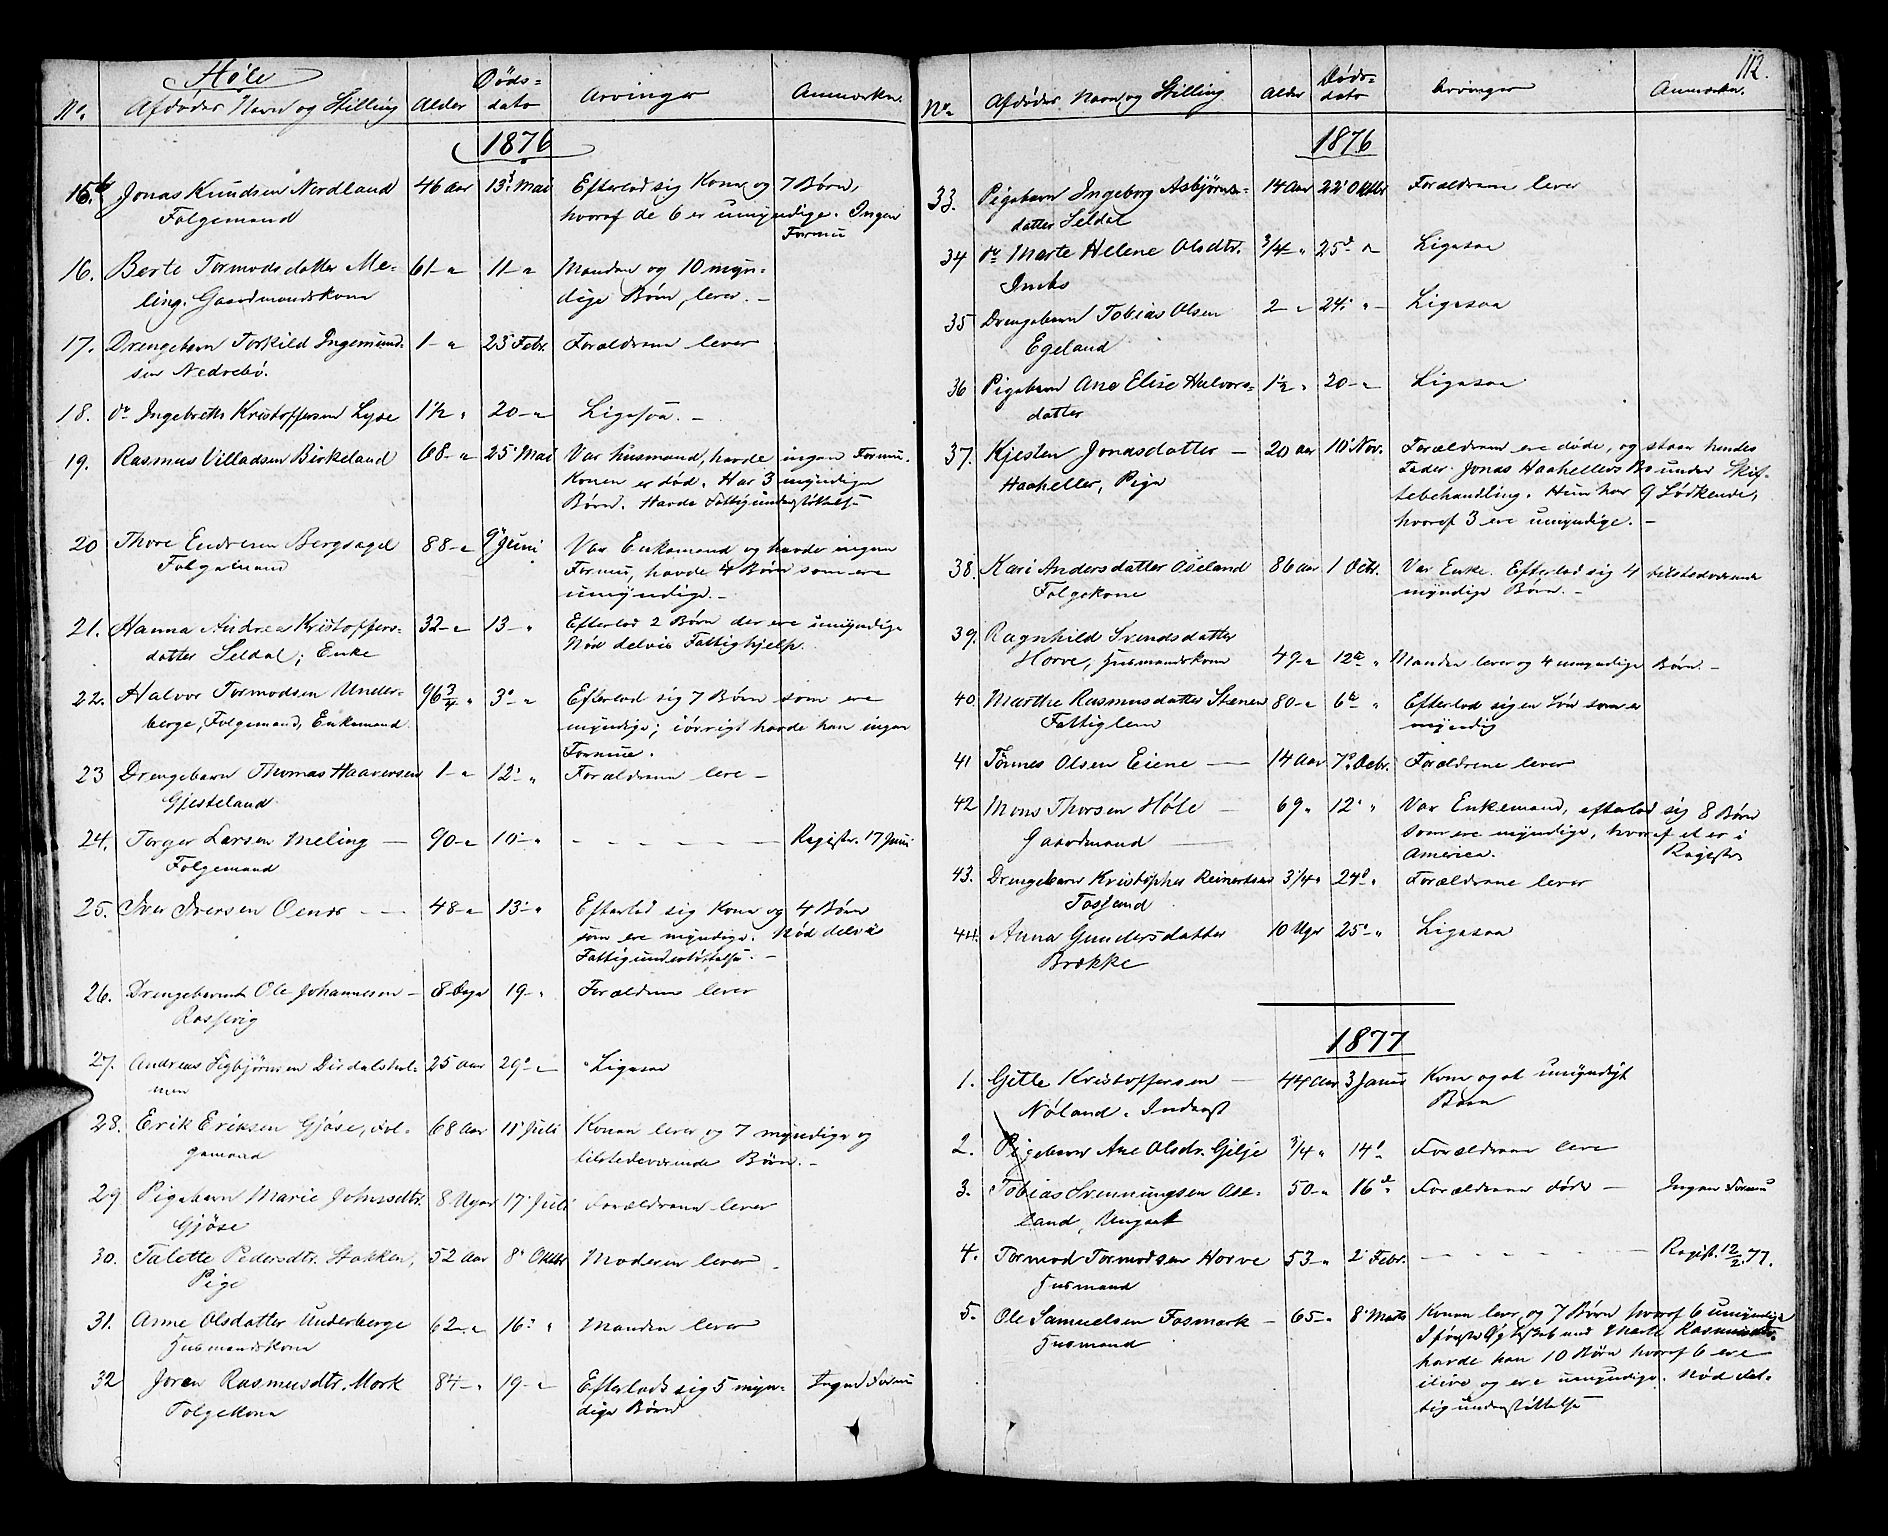 Høle
No. Afdødes Navn og Stilling Alder Døds-dato Arvinger Anmærkn.
1876
15.b Jonas Knudsen Nordland 46 aar 13d Mai Efterlod sig Kone og 7 Børn,
Folgemand hvoraf de 6 er umyndige. Ingen
Formue
16. Berte Tormodsdatter Me- 61 - " 11 - " Manden og 10 myn-
ling. Gaardmandskone dige Børn lever. -
17. Drengebarn Torkild Ingemund- 1 - " 23 Febr. Forældrene lever
sen Nedrebø.
18. do Ingebreth Kristoffersen Lyse 1½ " 20 - " Ligesaa. -
19. Rasmus Villadsen Birkeland 68 - " 25 Mai Var husmand, havde ingen Formue.
Konen er død. Har 3 myndige
Børn. Havde Fattigunderstøttelse
20 Thore Endresen Bergsagel 88 - " 9 Juni Var Enkemand og havde ingen
Folgemand Formue, havde 4 Børn som ere
umyndige. -
21. Hanna Andrea Kristoffers- 32 - " 13 - " Efterlod 2 Børn der ere umyndige
datter Seldal; Enke Nød delvis Fattighjelp.
22. Halvor Tormodsen Under- 96 3/4 " 3 - " Efterlod sig 7 Børn som ere
berge, Folgemand, Enkemand myndige; iøvrigt havde han ingen
Formue.
23 Drengebarn Thomas Haaversen 1 - " 12 - " Forældrene leve -
Gjesteland
24. Torger Larsen Meling - 90 - " 10 - " - - - - - - Registr. 17 Juni
Folgemand
25. Iver Iversen Oenes - - 48 - " 13 - " Efterlod sig Kone og 4 Børn
som ere myndige. Nød delvis
Fattigunderstøttelse. -
26. Drengebarnet Ole Johannesen - 8 Dage 19 - " Forældrene lever
Rossevig
27. Andreas Sigbjørnsen Dirdalshol- 25 aar 29 - " Ligesaa
men
28. Erik Eriksen Gjøse, Fol- 68 aar 11 Juli Konen lever og 7 myndige og
gemand tilstedeværende Børn. -
29 Pigebarn Marie Johnsdtr. 8 Uger 17 Juli Forældrene lever
Gjøse
30. Talette Pedersdtr. Stokken, 52 aar 8 Oktbr Moderen lever
Pige
31. Anne Olsdatter Underberge 62 - " 16 - " Manden lever
Husmandskone
32 Joren Rasmusdtr. Mork 84 - " 19 - " Efterlods sig 5 myn- Ingen Formue
Folgekone dige Børn
112.
No. Afdødes Navn og Stilling Alder Døds-dato Arvinger Anmærkn.
1876
33. Pigebarn Ingeborg Asbjørns- 14 Aar 22 Oktbr Forældrene lever
datter Seldal
34 do Marte Helene Olsdtr. 3/4 " 25d " Ligesaa
35 Drengebarn Tobias Olsen 2 - " 24 - " - Ligesaa
Egeland
36 Pigebarn Ane Elise Halvors- 1½ " 20 - " Ligesaa
datter
37. Kjesten Jonasdatter - 20 aar 10 Nov. Forældrene ere døde, og staar hendes
Haaheller, Pige Fader Jonas Haahellers Bo under Skif-
tebehandling. Hun har 9 Sødskende,
hvoraf 3 ere umyndige. -
38. Kari Andersdatter Oseland 86 aar 1 Octr. Var Enke. Efterlod sig 4 tilstedværende
Folgekone myndige Børn. -
39. Ragnhild Svendsdatter
Horve, Husmandskone 49 - " 12te " Manden lever og 4 umyndige Børn. -
40. Marthe Rasmusdatter Stenen 80 - " 6te " Efterlod sig en Søn som er
Fattiglem myndig
41 Tønnes Olsen Eiene - 14 Aar 7 Decbr. Forældrene lever
42 Mons Thorsen Høle - 69 " 12 " Var Enkemand, efterlod sig 8 Børn
Gaardmand som ere myndige, hvoraf et er i
America. Registr
43. Drengebarn Kristopher Reinertsen 3 1/4 " 24d " Forældrene lever
Fossand
44. Anna Gundersdatter 10 Uger 25 - " Ligesaa
Brække
1877
1. Gitle Kristoffersen - 44 Aar 3 Januar Kone og et umyndigt
Nøland. Inderst Barn
2. Pigebarn Ane Olsdr. Gilje 3/4 " 14d Forældrene leve
3. Tobias Svenningsen Ose- 50 - " 16d " Forældrene døde - Ingen Formue
land, Ungkarl
4. Tormod Tormodsen Horve 53 - " 2 Febr. - - - - - - Regist. 12/2.77.
Husmand
5. Ole Samuelsen Fosmark - 65 - " 8 Marts Konen lever og 7 Børn hvoraf 6 umyndige
Husmand I første Ægteskab med Marte Rasmusdtr.
havde han 10 Børn hvoraf 6 ere
ilive og ere umyndige. Nød Fat-
tigunderstøttelse